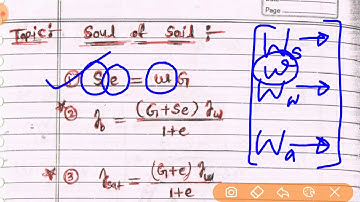 Date
Page
Topic: Soul of Soil :-
① Se = wG
② γb = (G+Se)γw / 1+e
③ γsat = (G+e)γw / 1+e
Ws →
w
Ww →
Wa →